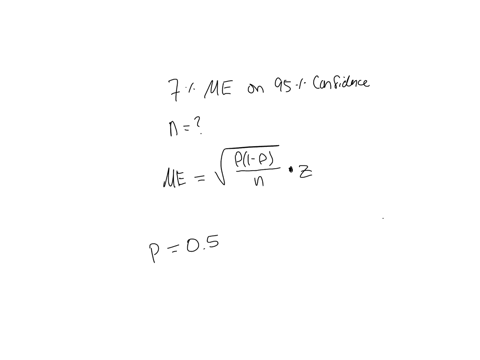 7% ME on 95% Confidence
n = ?
ME = √(P(1-P)/n) • z
P = 0.5